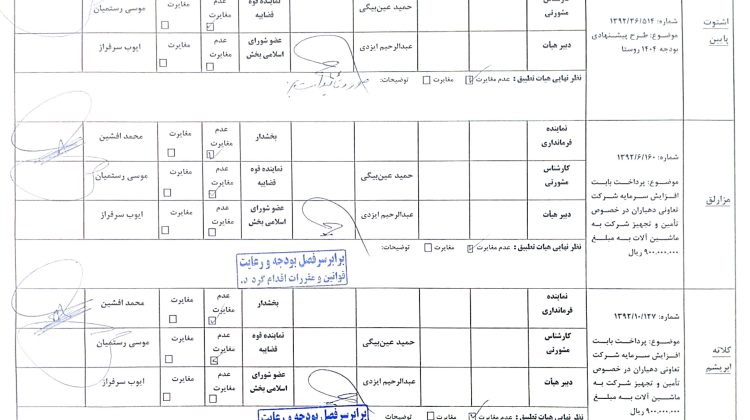 اشتوت پایین
شماره: ۱۳۹۲/۳۶/۵۱۴
موضوع: طرح پیشنهادی
بودجه ۱۴۰۴ روستا
کارشناس مشورتی
حمید عین‌بیگی
نماینده قوه قضاییه
عدم مغایرت
مغایرت
موسی رستمیان
دبیر هیأت
عبدالرحیم ایزدی
عضو شورای اسلامی بخش
عدم مغایرت
مغایرت
ایوب سرفراز
نظر نهایی هیات تطبیق: عدم مغایرت مغایرت توضیحات:
مزارلق
شماره: ۱۳۹۲/۶/۱۶۰
موضوع: پرداخت بابت
افزایش سرمایه شرکت
تعاونی دهیاران در خصوص
تأمین و تجهیز شرکت به
ماشین آلات به مبلغ
۹۰۰.۰۰۰.۰۰۰ ریال
نماینده فرمانداری
بخشدار
عدم مغایرت
مغایرت
محمد افشین
کارشناس مشورتی
حمید عین‌بیگی
نماینده قوه قضاییه
عدم مغایرت
مغایرت
موسی رستمیان
دبیر هیأت
عبدالرحیم ایزدی
عضو شورای اسلامی بخش
عدم مغایرت
مغایرت
ایوب سرفراز
نظر نهایی هیات تطبیق: عدم مغایرت مغایرت توضیحات:
برابر سرفصل بودجه و رعایت
قوانین و مقررات اقدام گردد.
کلاته ابریشم
شماره: ۱۳۹۲/۱۰/۱۲۷
موضوع: پرداخت بابت
افزایش سرمایه شرکت
تعاونی دهیاران در خصوص
تأمین و تجهیز شرکت به
ماشین آلات به مبلغ
۹۰۰.۰۰۰.۰۰۰ ریال
نماینده فرمانداری
بخشدار
عدم مغایرت
مغایرت
محمد افشین
کارشناس مشورتی
حمید عین‌بیگی
نماینده قوه قضاییه
عدم مغایرت
مغایرت
موسی رستمیان
دبیر هیأت
عبدالرحیم ایزدی
عضو شورای اسلامی بخش
عدم مغایرت
مغایرت
ایوب سرفراز
نظر نهایی هیات تطبیق: عدم مغایرت مغایرت توضیحات:
برابر سرفصل بودجه و رعایت